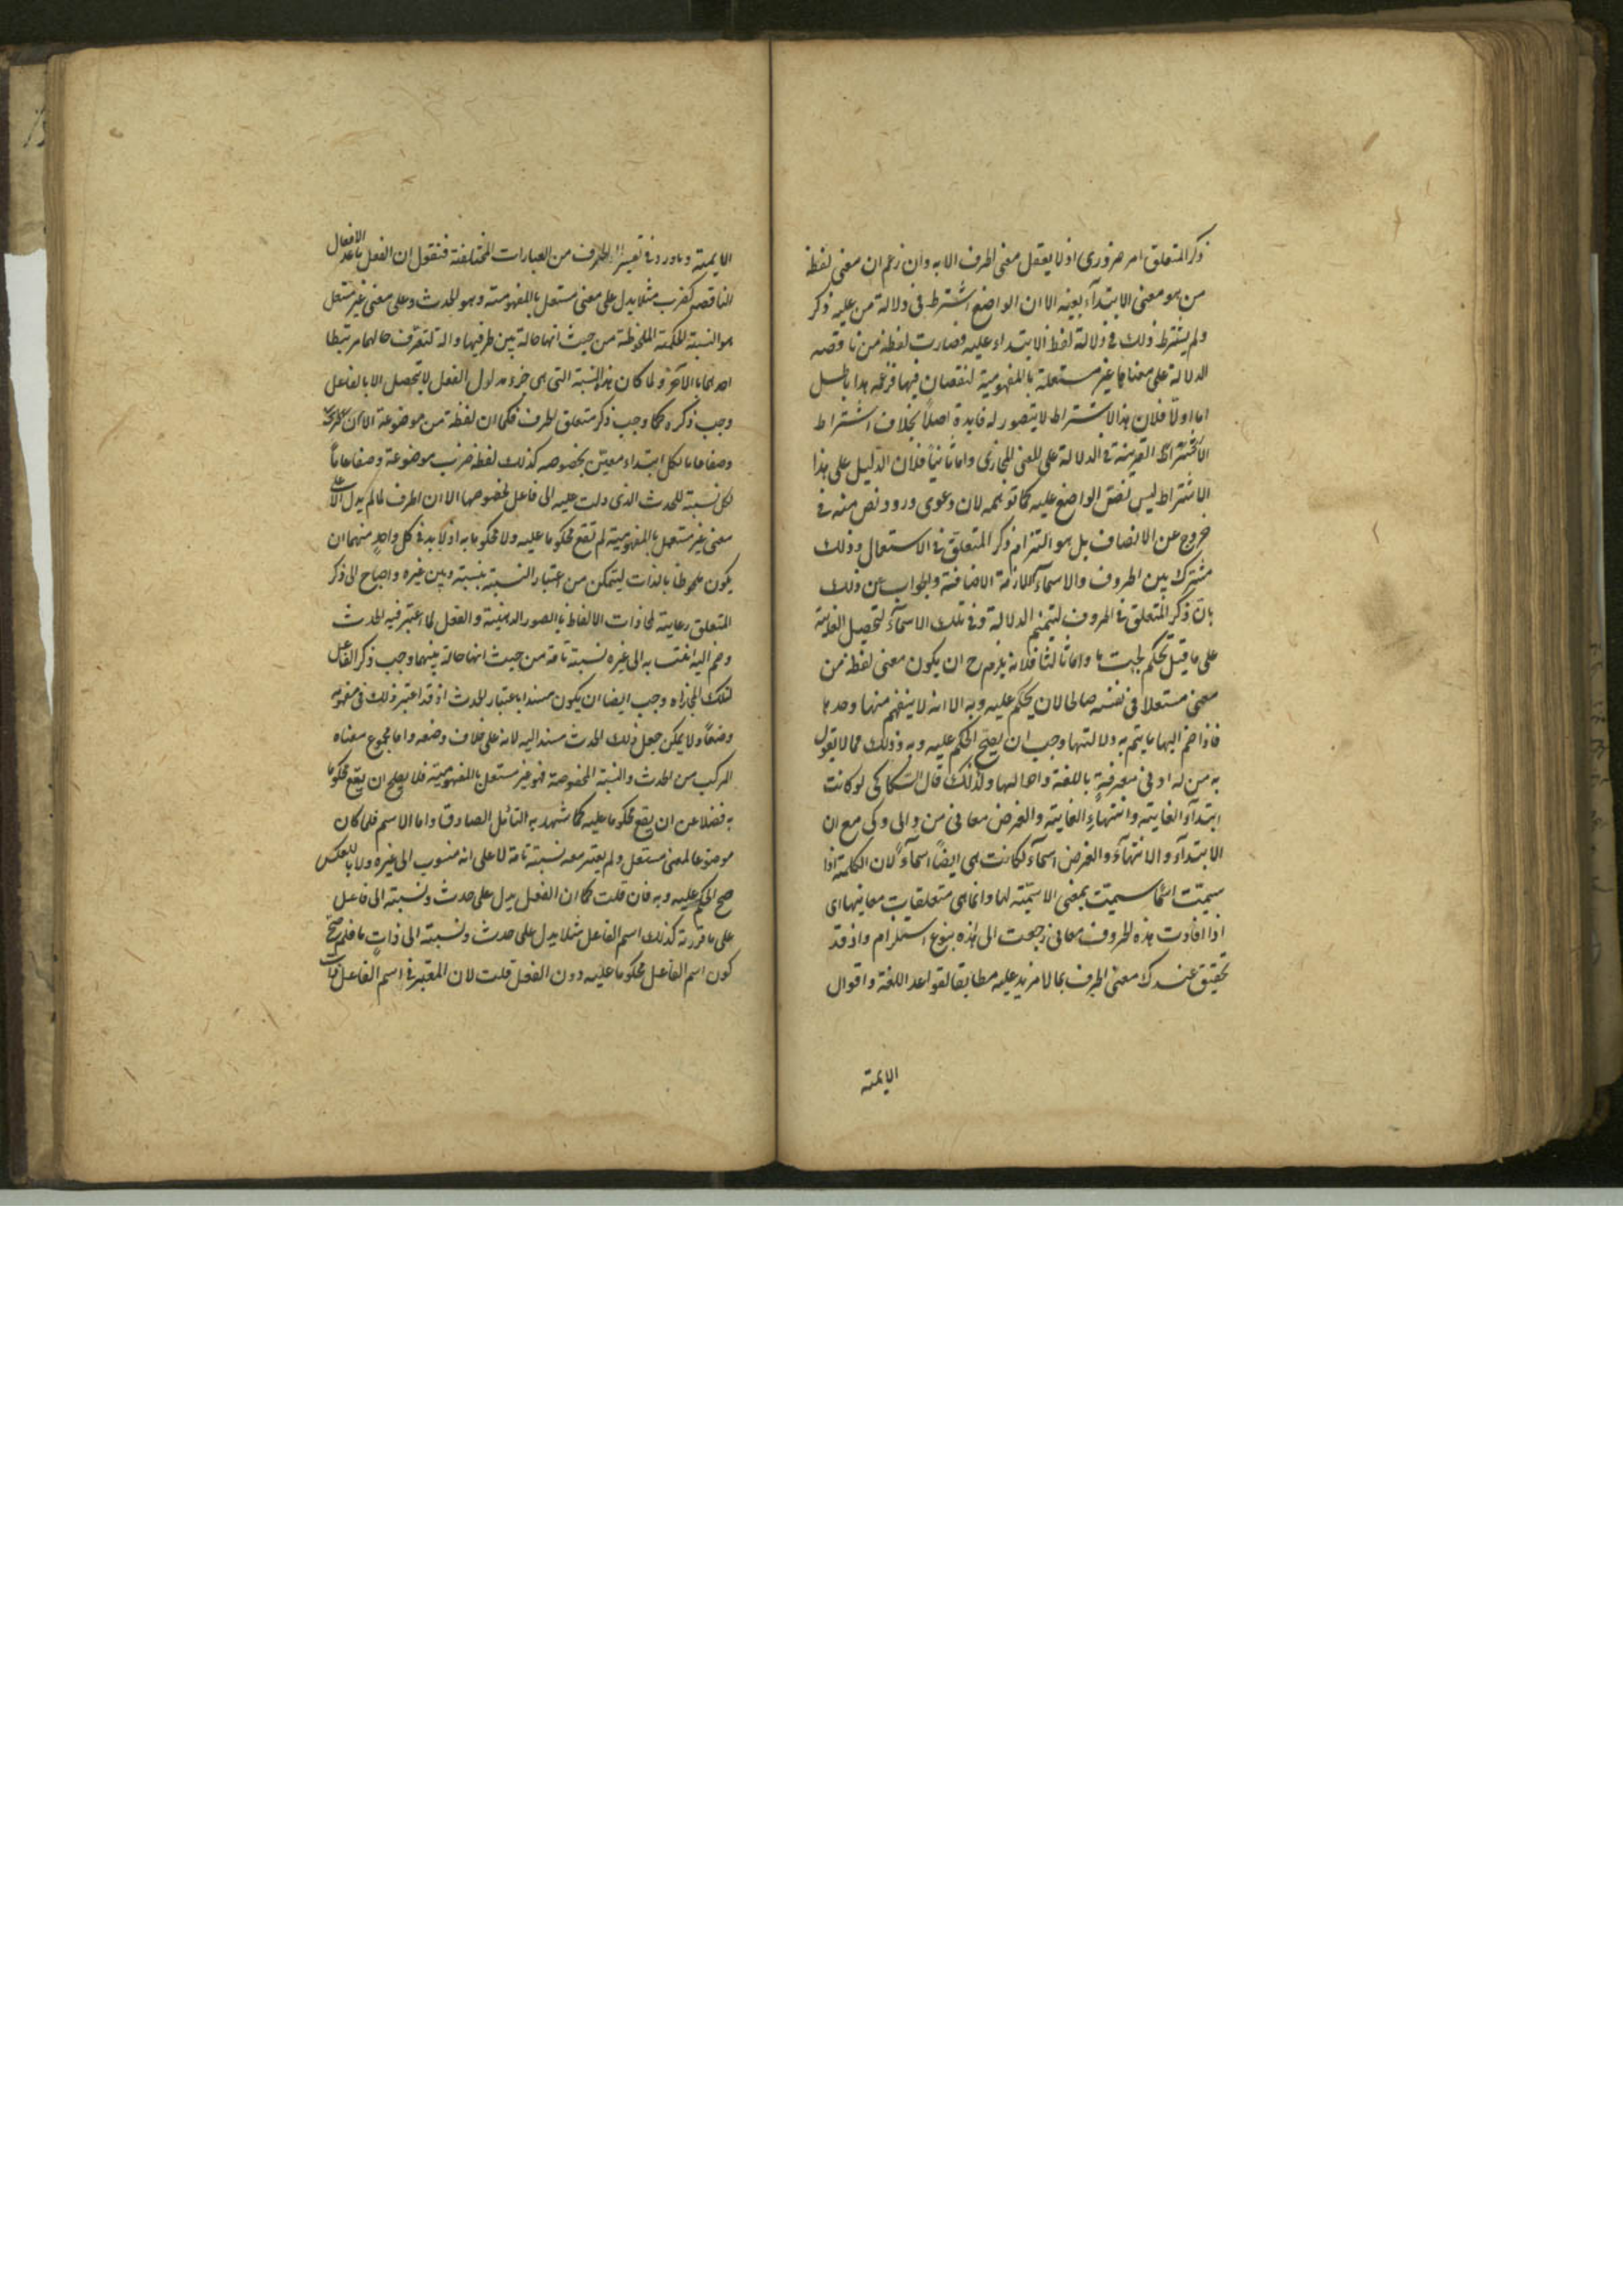 ذكر المتعلق امر ضروري اذ لا يعقل معنى الحرف الا به وان زعم ان معنى لفظة
من هو معنى الابتدآء بعينه الا ان الواضع اشترط في دلالة من عليه ذكر
ولم يشترط ذلك في دلالة لفظ الابتداء عليه فصارت لفظة من ناقصه
الدلالة على معناها غير مستقلة بالمفهومية لنقصان فيها فزعمه هذا باطل
اما اولا فلان هذا الاشتراط لا يتصور له فايدة اصلا بخلاف اشتراط
القرينة في الدلالة على المعنى المجازى واما ثانيا فلان الدليل على هذا
الاشتراط ليس نص الواضع عليه كما توهمه لان دعوى ورود نص منه في
خروج عن الانصاف بل هو التزام ذكر المتعلق في الاستعمال وذلك
مشترك بين الحروف والاسمآء اللازمة الاضافة والجواب عن ذلك
بان ذكر المتعلق في الحروف لتتميم الدلالة وفي تلك الاسمآء لتحصيل الغاية
على ما قيل تحكم بحت واما ثالثا فلانه يلزم ح ان يكون معنى لفظة من
معنى مستقلا في نفسه صالحا لان يحكم عليه وبه الا انه لا ينفهم منها وحدها
فاذا ضم اليها ما يتم به دلالتها وجب ان يصح الحكم عليه وبه وذلك مما لا يقول
به من له ادنى معرفة باللغة واحوالها ولذلك قال السكاكى لو كانت
ابتدآء الغاية وانتهاء الغاية والغرض معانى من والى وكى مع ان
الابتدآء والانتهآء والغرض اسمآء لكانت هي ايضا اسمآء لان الكلمة اذا
سميت اسما سميت بمعنى الاسمية لها وانما هي متعلقات معانيها اى
اذا افادت هذه الحروف معانى رجعت الى هذه بنوع استلزام واذ قد
تحقق عندك معنى الحرف بما لا مزيد عليه مطابقا لقواعد اللغة واقوال
الايمته
الايمة وما ورد في تفسير الحرف من العبارات المختلفة فنقول ان الفعل ما عدا الافعال
الناقصه كضرب مثلا يدل على معنى مستقل بالمفهومية وهو الحدث وعلى معنى غير مستقل
هو النسبة الحكمية الملحوظة من حيث انها حالة بين طرفيها والة لتعرف حالهما مرتبطا
احدهما بالآخر ولما كان هذه النسبة التى هى جزء مدلول الفعل لا يتحصل الا بالفاعل
وجب ذكره كما وجب ذكر متعلق الحرف فكما ان لفظة من موضوعة
وضعا عاما لكل ابتداء معين بخصوصه كذلك لفظة ضرب موضوعة وضعا عاما
لكل نسبة للحدث الذى دلت عليه الى فاعل بخصوصها الا ان الحرف لما لم يدل الا على
معنى غير مستقل بالمفهومية لم تقع محكوما عليه ولا محكوما به اذ لا بد في كل واحد منهما ان
يكون ملحوظا بالذات ليتمكن من اعتبار النسبة بينه وبين غيره واحتاج الى ذكر
المتعلق رعاية لمحاذات الالفاظ بالصور الذهنية والفعل لما اعتبر فيه الحدث
وضم اليه انتسابه الى غيره نسبة تامة من حيث انها حالة بينهما وجب ذكر الفاعل
لتلك المحاذاة وجب ايضا ان يكون مسندا باعتبار الحدث اذ قد اعتبر ذلك في مفهومه
وضعا ولا يمكن جعل ذلك الحدث مسندا اليه لانه على خلاف وضعه واما مجموع معناه
المركب من الحدث والنسبة المخصوصة فهو غير مستقل بالمفهومية فلا يصلح ان يقع محكوما
به فضلا عن ان يقع محكوما عليه كما شهد به التامل الصادق واما الاسم فلما كان
موضوعا لمعنى مستقل ولم يعتبر معه نسبة تامة لا على انه منسوب الى غيره ولا بالعكس
صح الحكم عليه وبه فان قلت كما ان الفعل يدل على حدث ونسبته الى فاعل
على ما قررته كذلك اسم الفاعل مثلا يدل على حدث ونسبته الى ذات ما فلم صح
كون اسم الفاعل محكوما عليه دون الفعل قلت لان المعتبر في اسم الفاعل ذات